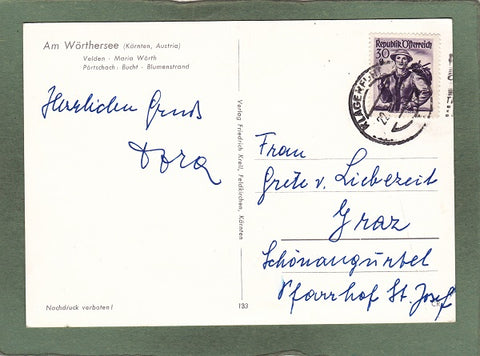 Am Wörthersee (Kärnten, Austria)
Velden · Maria Wörth
Pörtschach · Bucht · Blumenstrand
Herzlichen Gruß
Dora
Nachdruck verboten!
Verlag Friedrich Kreil, Feldkirchen, Kärnten
133
Republik Österreich
30
KLAGENFURT
Frau
Grete v. Liebezeit
Graz
Schönaugürtel
Pfarrhof St. Josef